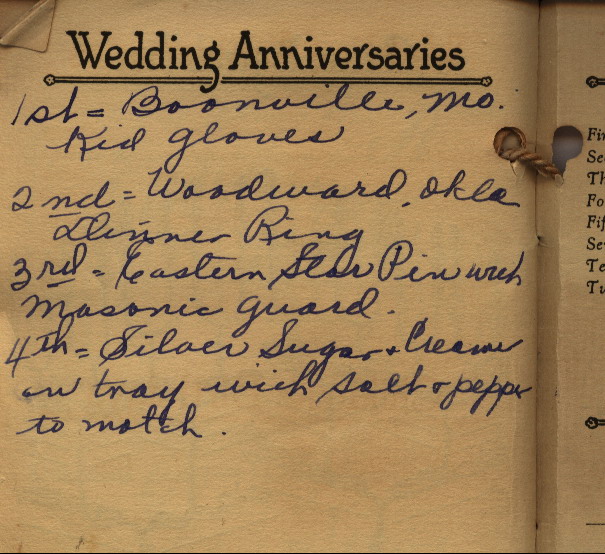 Wedding Anniversaries
1st = Boonville, Mo.
Kid gloves
2nd = Woodward, Okla
Dinner Ring
3rd = Eastern Star Pin with
Masonic guard.
4th = Silver Sugar & Creamer
on tray with salt & pepper
to match.
Fi
Se
Th
Fo
Fif
Se
Te
Tu